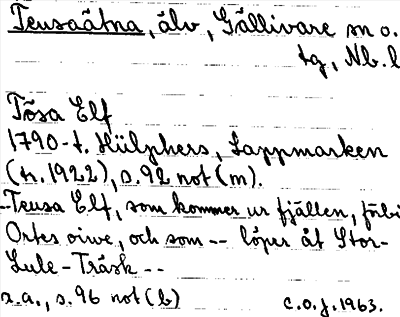 Teusaätna, älv, Gällivare sn o.
tg, Nb. l
Tösa Elf
1790-t. Hülphers, Lappmarken
(tr. 1922), s. 92 not (m).
Teusa Elf, som kommer ur fjällen, förbi
Ortes oiwe, och som -- löper åt Stor-
Lule-Träsk --
s.a., s. 96 not (b)
c.o.j. 1963.